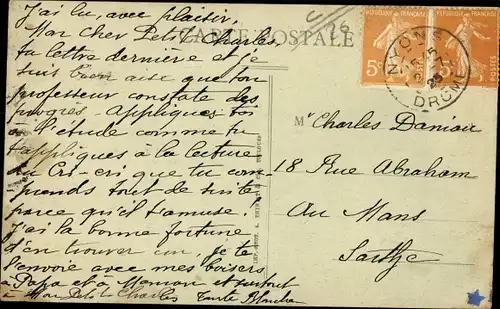 J'ai lu, avec plaisir,
Mon cher Petit Charles,
ta lettre dernière et je
suis bien aise que ton
professeur constate des
progrès. Appliques toi
à l'étude comme tu
t'appliques à la lecture
du Cri-cri que tu com-
prends tout de suite
parce qu'il t'amuse.
J'ai la bonne fortune
d'en trouver un. je te
l'envoie avec mes baisers
à Papa et à Maman et surtout
à Mon Petit Charles Tante Blanche
CARTE POSTALE
26
REPUBLIQUE FRANÇAISE
5c
REPUBLIQUE FRANÇAISE
5c
NYONS
15
25
DROME
M Charles Daniau
18 Rue Abraham
Au Mans
Sarthe